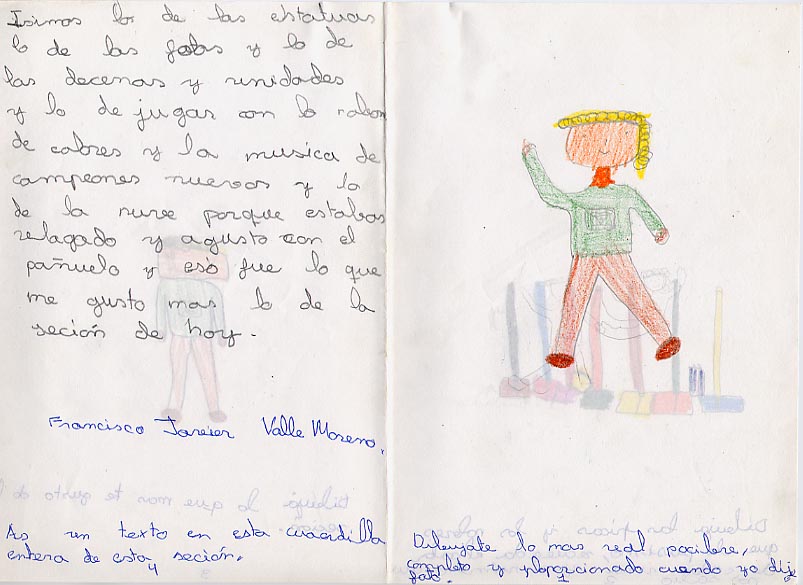 Isimos lo de las estatuas
lo de las fotos y lo de
las decenas y unidades
y lo de jugar con lo
de colores y la musica de
campeones nuevos y lo
de la nuve porque estabas
relagado y agusto con el
pañuelo y eso fue lo que
me gusto mas lo de la
seción de hoy.
Francisco Javier Valle Moreno.
As un texto en esta cuardilla
entera de esta seción.
4
Dibujate lo mas real pocible,
completo y proporcionado cuando yo dije
foto.
1